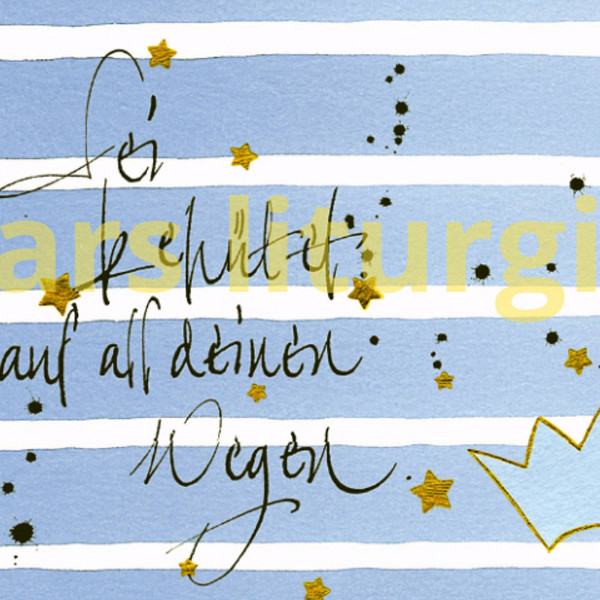 Sei
behütet
auf all deinen
Wegen
ars liturgi